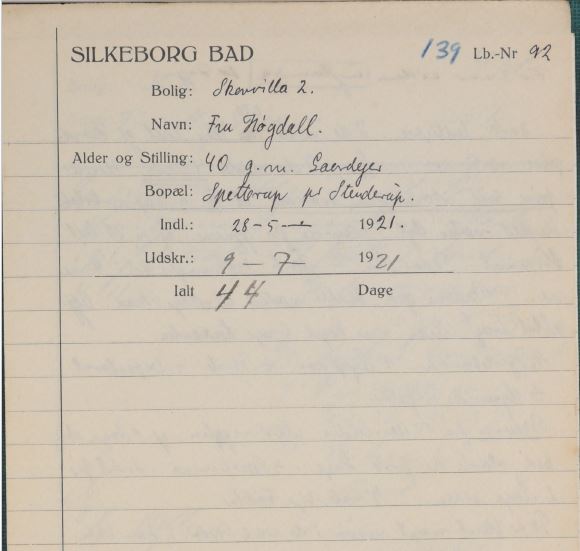 SILKEBORG BAD 139 Lb.-Nr 92
Bolig: Skovvilla 2.
Navn: Fru Høgdall.
Alder og Stilling: 40 g.m. Gaardejer
Bopæl: Spetterup pr Stenderup.
Indl.: 28-5- 1921.
Udskr.: 9-7 1921
Ialt 44 Dage